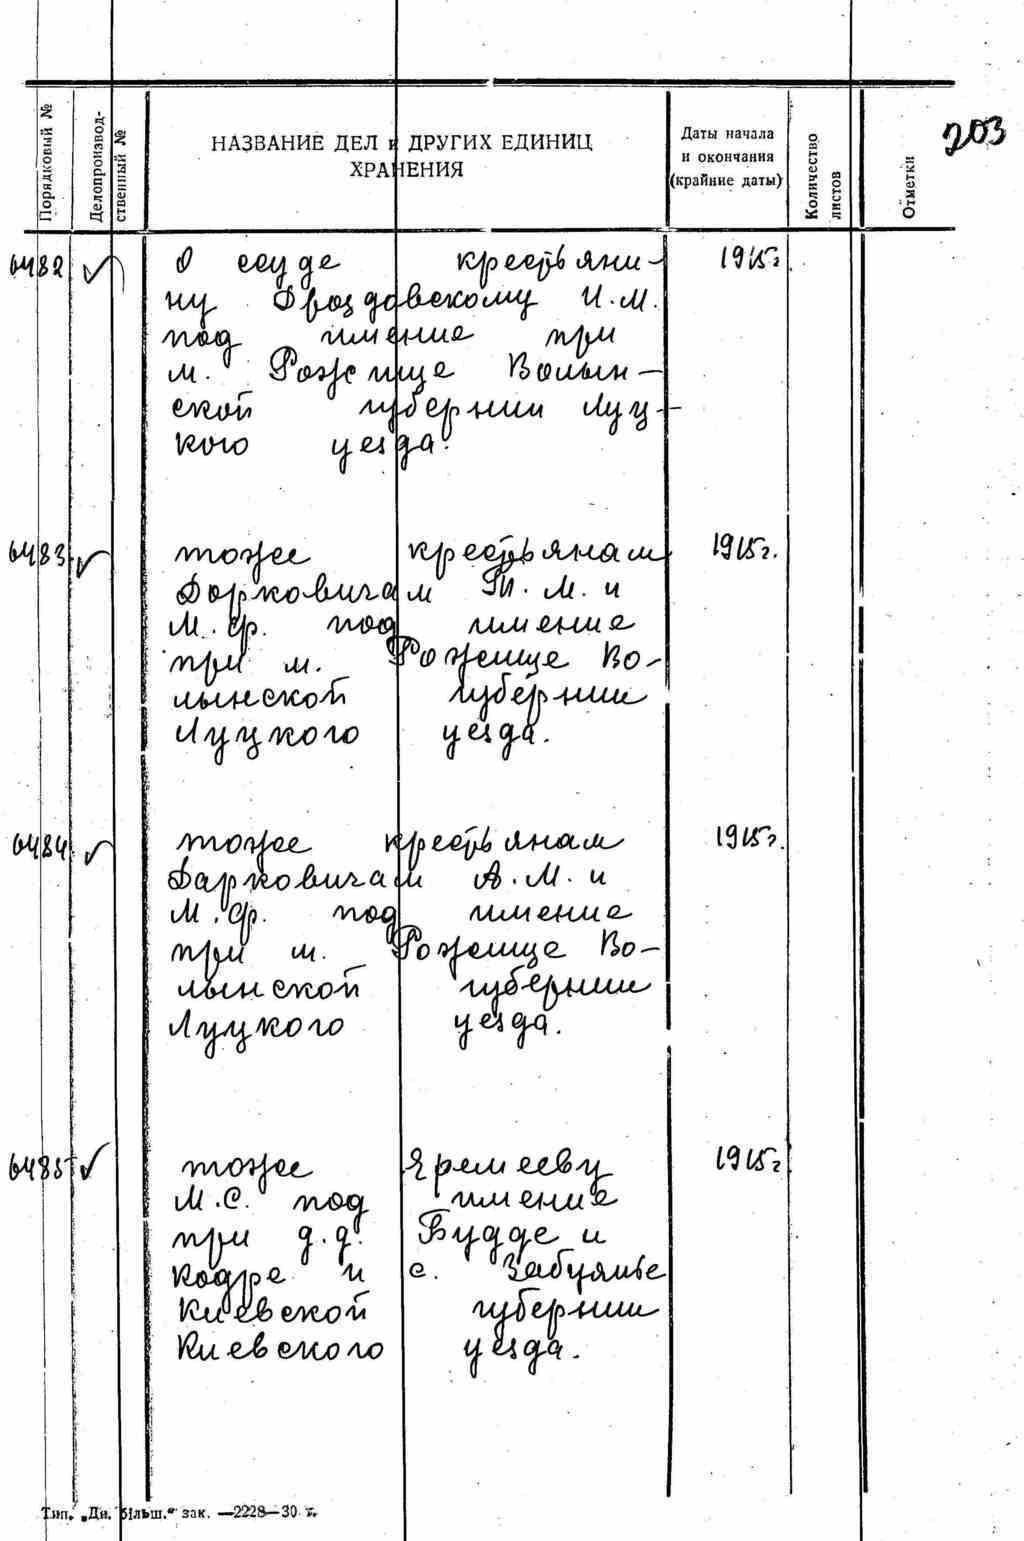 203
Порядковый №
Делопроизвод-
ственный №
НАЗВАНИЕ ДЕЛ и ДРУГИХ ЕДИНИЦ
ХРАНЕНИЯ
Даты начала
и окончания
(крайние даты)
Количество
листов
Отметки
6482 О ссуде крестьяни- 1915г
ну Дроздовскому И.М.
под имение при
м. Рожище Волын-
ской губернии Луц-
кого уезда.
6483 тоже крестьянам 1915г.
Борковичам М. и
М.Ф. под имение
при м. Рожище Во-
лынской губернии
Луцкого уезда.
6484 тоже крестьянам 1915г.
Барковичам А.М. и
М.Ф. под имение
при м. Рожище Во-
лынской губернии
Луцкого уезда.
6485 тоже Яремееву 1915г
М.С. под имение
при д.д. Будде и
Кодре и с. Забуянье
Киевской губернии
Киевского уезда.
Тип. „Дн. більш." зак. —2228—30 т.